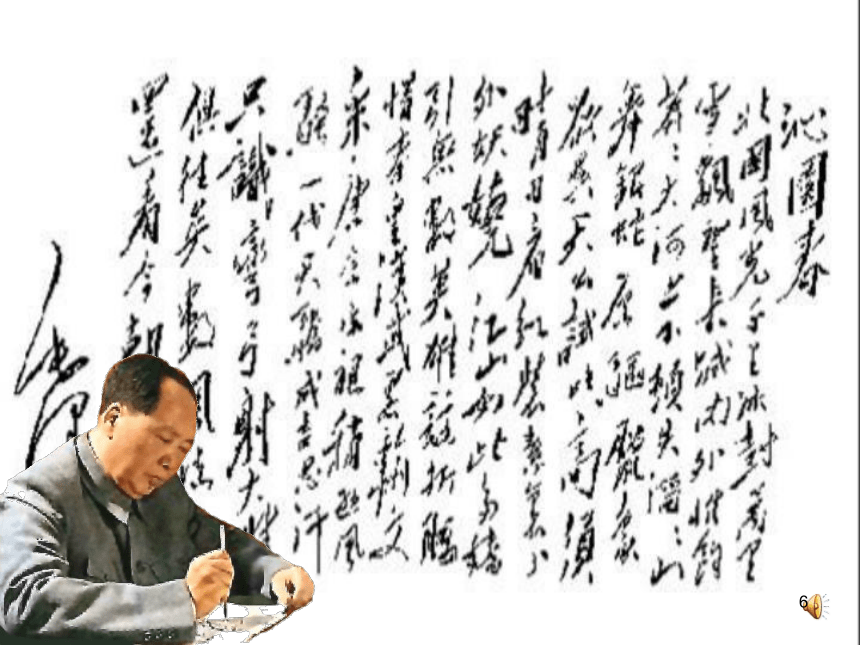 沁園春
北國風光千里冰封萬里
雪飄望長城内外惟餘
莽〻大河上下頓失滔〻山
舞銀蛇原驅臘象
欲與天公試比高須
晴日看紅裝素裹分
外妖嬈江山如此多嬌
引無數英雄競折腰
惜秦皇漢武略輸文
采唐宗宋祖稍遜風
騷一代天驕成吉思汗
只識彎弓射大
俱往矣數風流
還看今朝
毛澤
6